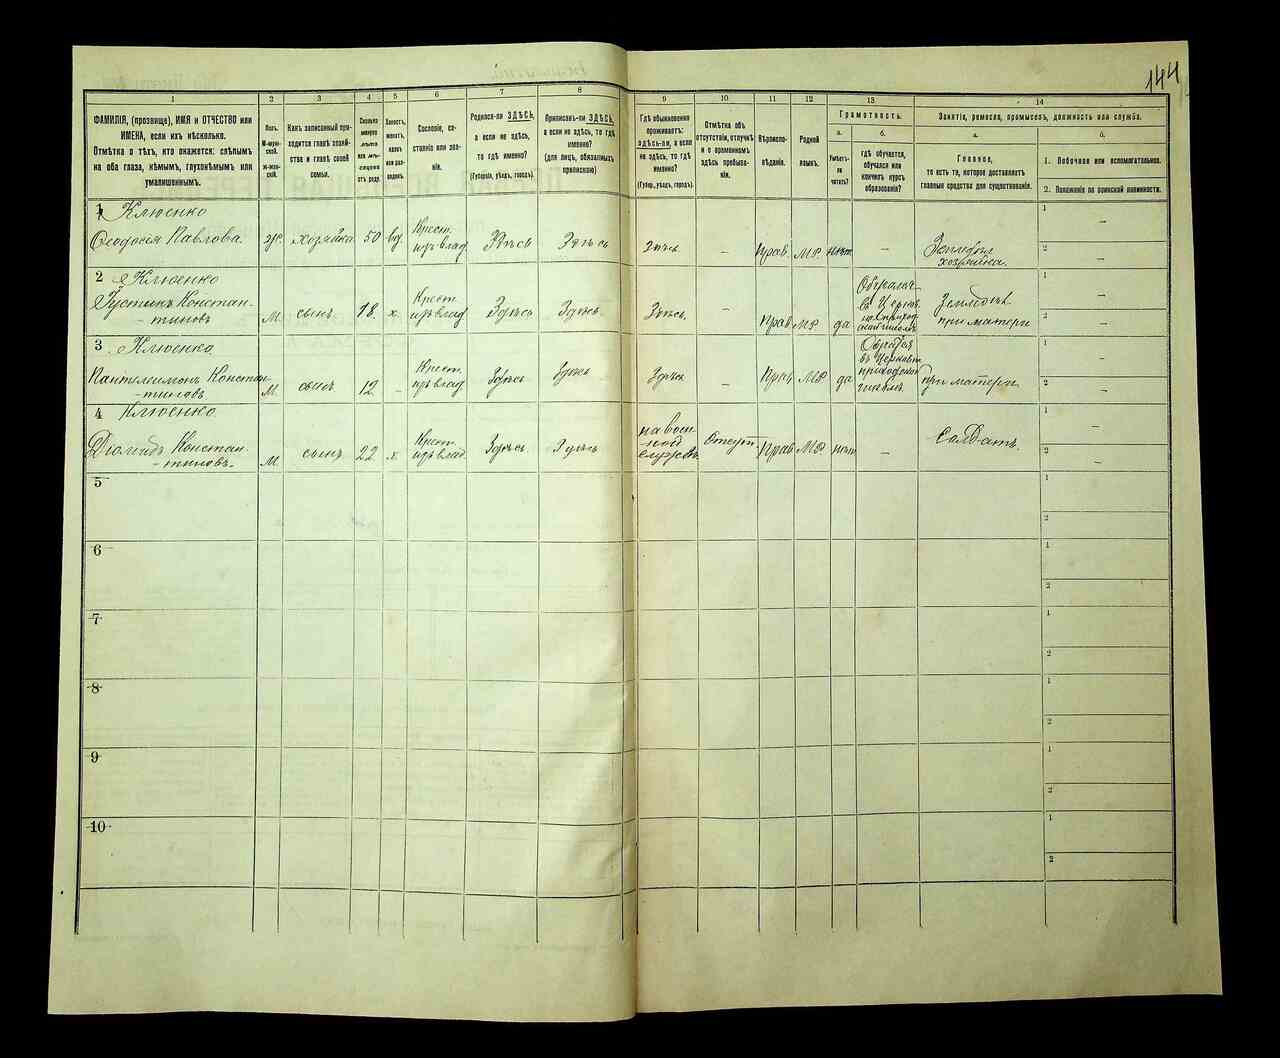 144
1
2
3
4
5
6
7
8
9
10
11
12
13
14
ФАМИЛІЯ, (прозвище), ИМЯ и ОТЧЕСТВО или
ИМЕНА, если ихъ нѣсколько.
Отмѣтка о тѣхъ, кто окажется: слѣпымъ
на оба глаза, нѣмымъ, глухонѣмымъ или
умалишеннымъ.
Полъ.
М-мужской.
Ж-женскій.
Какъ записанный приходится
главѣ хозяйства
и главѣ своей
семьи.
Сколько
минуло
лѣтъ
или мѣсяцевъ
отъ роду.
Холостъ,
женатъ,
вдовъ
или разведенъ.
Сословіе, состояніе
или званіе.
Родился-ли ЗДѢСЬ,
а если не здѣсь,
то гдѣ именно?
(Губернія, уѣздъ, городъ).
Приписанъ-ли ЗДѢСЬ,
а если не здѣсь, то гдѣ
именно?
(для лицъ, обязанныхъ
припискою)
Гдѣ обыкновенно
проживаетъ:
здѣсь-ли, а если
не здѣсь, то гдѣ
именно?
(Губер., уѣздъ, городъ).
Отмѣтка объ
отсутствіи, отлучкѣ
и о временномъ
здѣсь пребываніи.
Вѣроисповѣданіе.
Родной
языкъ.
Грамотность.
а.
б.
Умѣетъ-ли
читать?
гдѣ обучается,
обучался или
кончилъ курсъ
образованія?
Занятіе, ремесло, промыселъ, должность или служба.
а.
б.
Главное,
то есть то, которое доставляетъ
главныя средства для существованія.
1. Побочное или вспомогательное.
2. Положеніе по воинской повинности.
1 Клюенко
Ѳеодосія Павлова. ж. хозяйка 50 вд. Крест. изъ влад. Здѣсь Здѣсь Здѣсь — Прав. МР. нѣтъ — хозяйка.
1 —
2 —
2 Клюенко
Іустинъ Константиновъ М. сынъ 18. х. Крест. изъ влад. Здѣсь Здѣсь. Здѣсь. — Прав. МР. да
при матери
1 —
2 —
3 Клюенко
Пантелеимонъ Константиновъ М. сынъ 12. — Крест. изъ влад. Здѣсь Здѣсь Здѣсь — Прав МР да при матери.
1 —
2 —
4 Клюенко
Діомидъ Константиновъ. М. сынъ 22. х Крест. изъ влад. Здѣсь. Здѣсь на военной службѣ Отсут. Прав МР. нѣтъ — Солдатъ.
1 —
2 —
5
1
2
6
1
2
7
1
2
8
1
2
9
1
2
10
1
2